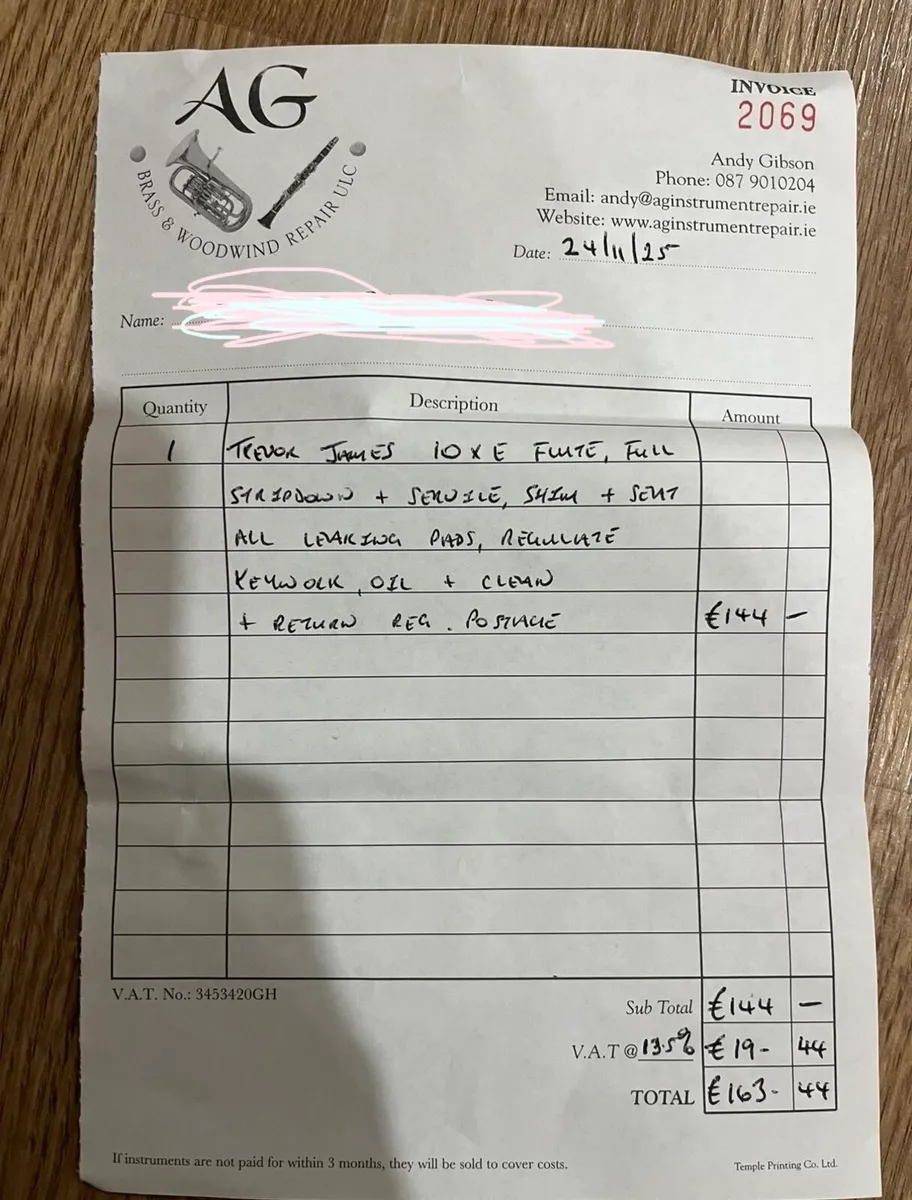 AG
BRASS & WOODWIND REPAIR ULC
INVOICE
2069
Andy Gibson
Phone: 087 9010204
Email: andy@aginstrumentrepair.ie
Website: www.aginstrumentrepair.ie
Date: 24/11/25
Name:
Quantity Description Amount
1 TREVOR JAMES 10 X E FLUTE, FULL
STRIPDOWN + SERVICE, SHIM + SEAT
ALL LEAKING PADS, REGULATE
KEYWORK, OIL + CLEAN
+ RETURN REG. POSTAGE €144 –
V.A.T. No.: 3453420GH
Sub Total €144 –
V.A.T @ 13.5% € 19- 44
TOTAL € 163- 44
If instruments are not paid for within 3 months, they will be sold to cover costs.
Temple Printing Co. Ltd.